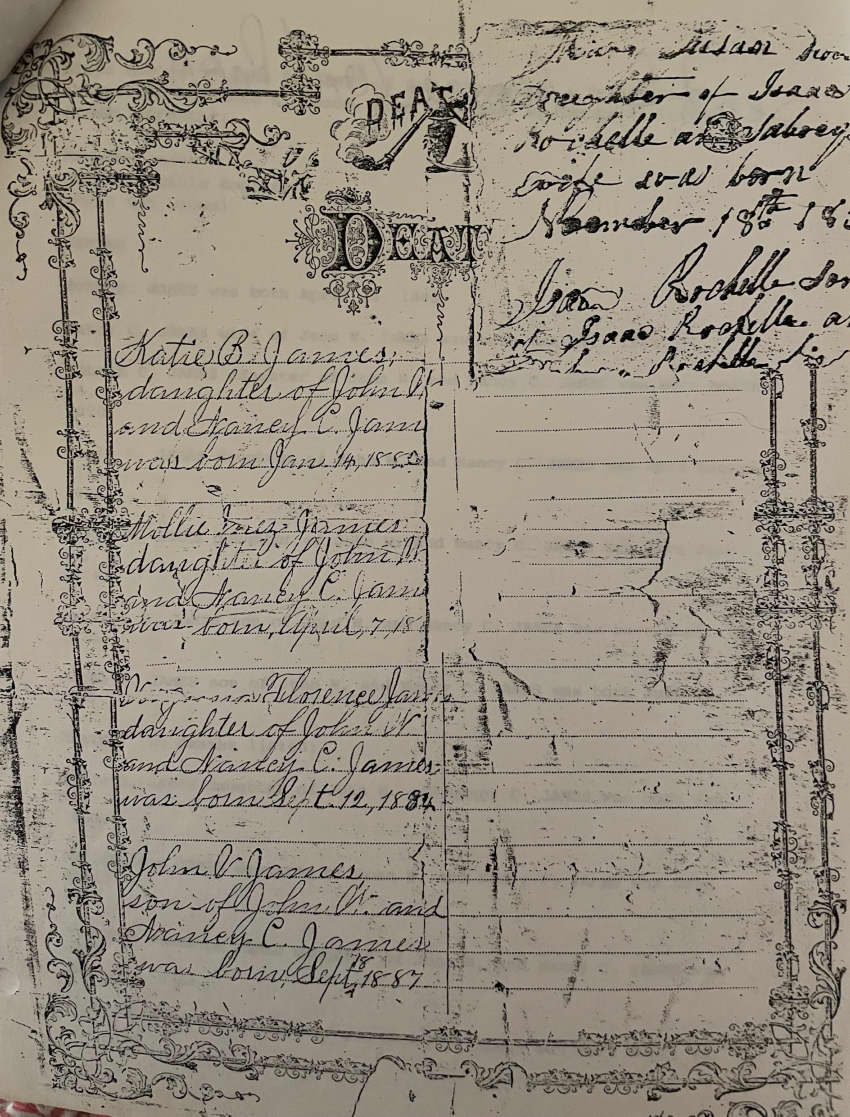 DEAT
DEAT
Susan
Daughter of Isaac
Rochelle and Sabrey
wife was born
November 18th 18
Isaac Rochelle Son
of Isaac Rochelle a
Rochelle
Katie B. James,
daughter of John W
and Nancy C. Jam
was born Jan 14, 188
Mollie Inez James
daughter of John W
and Nancy C. Jam
was born, April, 7, 18
Florence James
daughter of John W
and Nancy C. James
was born Sept. 12, 1884
John V James
son of John W. and
Nancy C. James
was born, Sept 18 1887